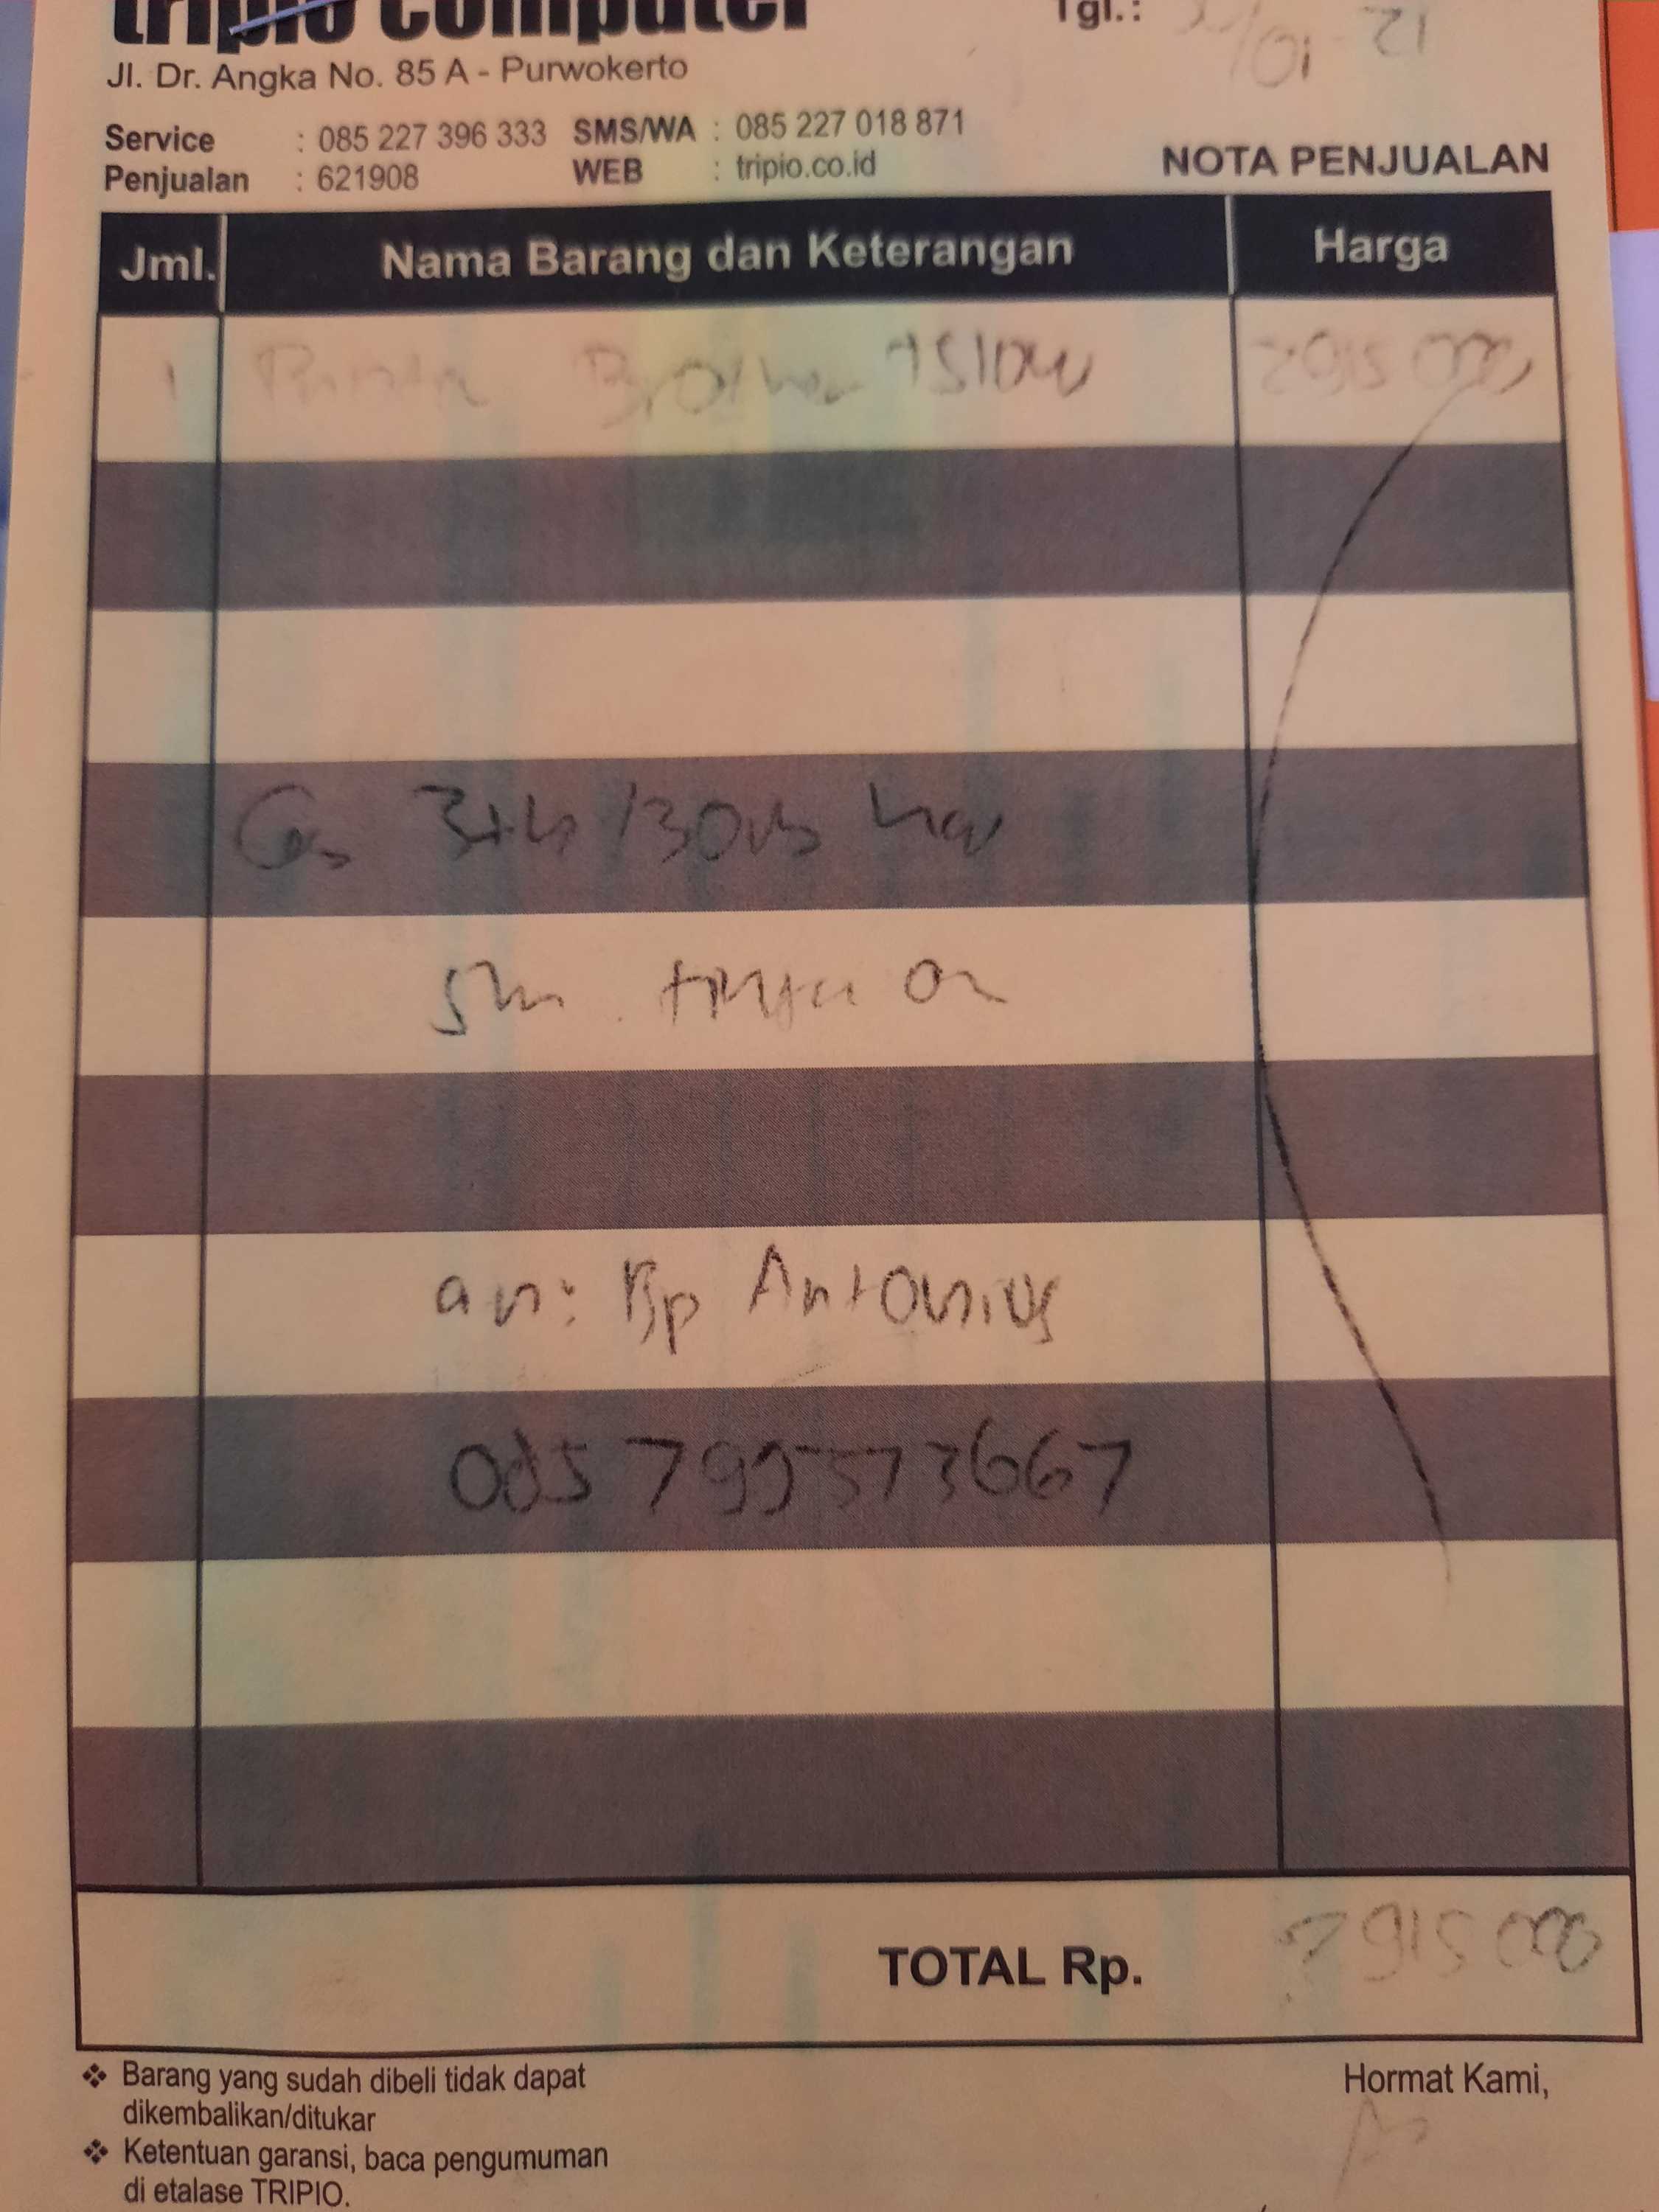 tripio computer
Tgl.:
Jl. Dr. Angka No. 85 A - Purwokerto
Service : 085 227 396 333 SMS/WA : 085 227 018 871
Penjualan : 621908 WEB : tripio.co.id
NOTA PENJUALAN
Jml. Nama Barang dan Keterangan Harga
1 Printer Brother T510W 2915 000
an: Bp Antonius
085799573667
TOTAL Rp. 2915 000
❖ Barang yang sudah dibeli tidak dapat
dikembalikan/ditukar
❖ Ketentuan garansi, baca pengumuman
di etalase TRIPIO.
Hormat Kami,